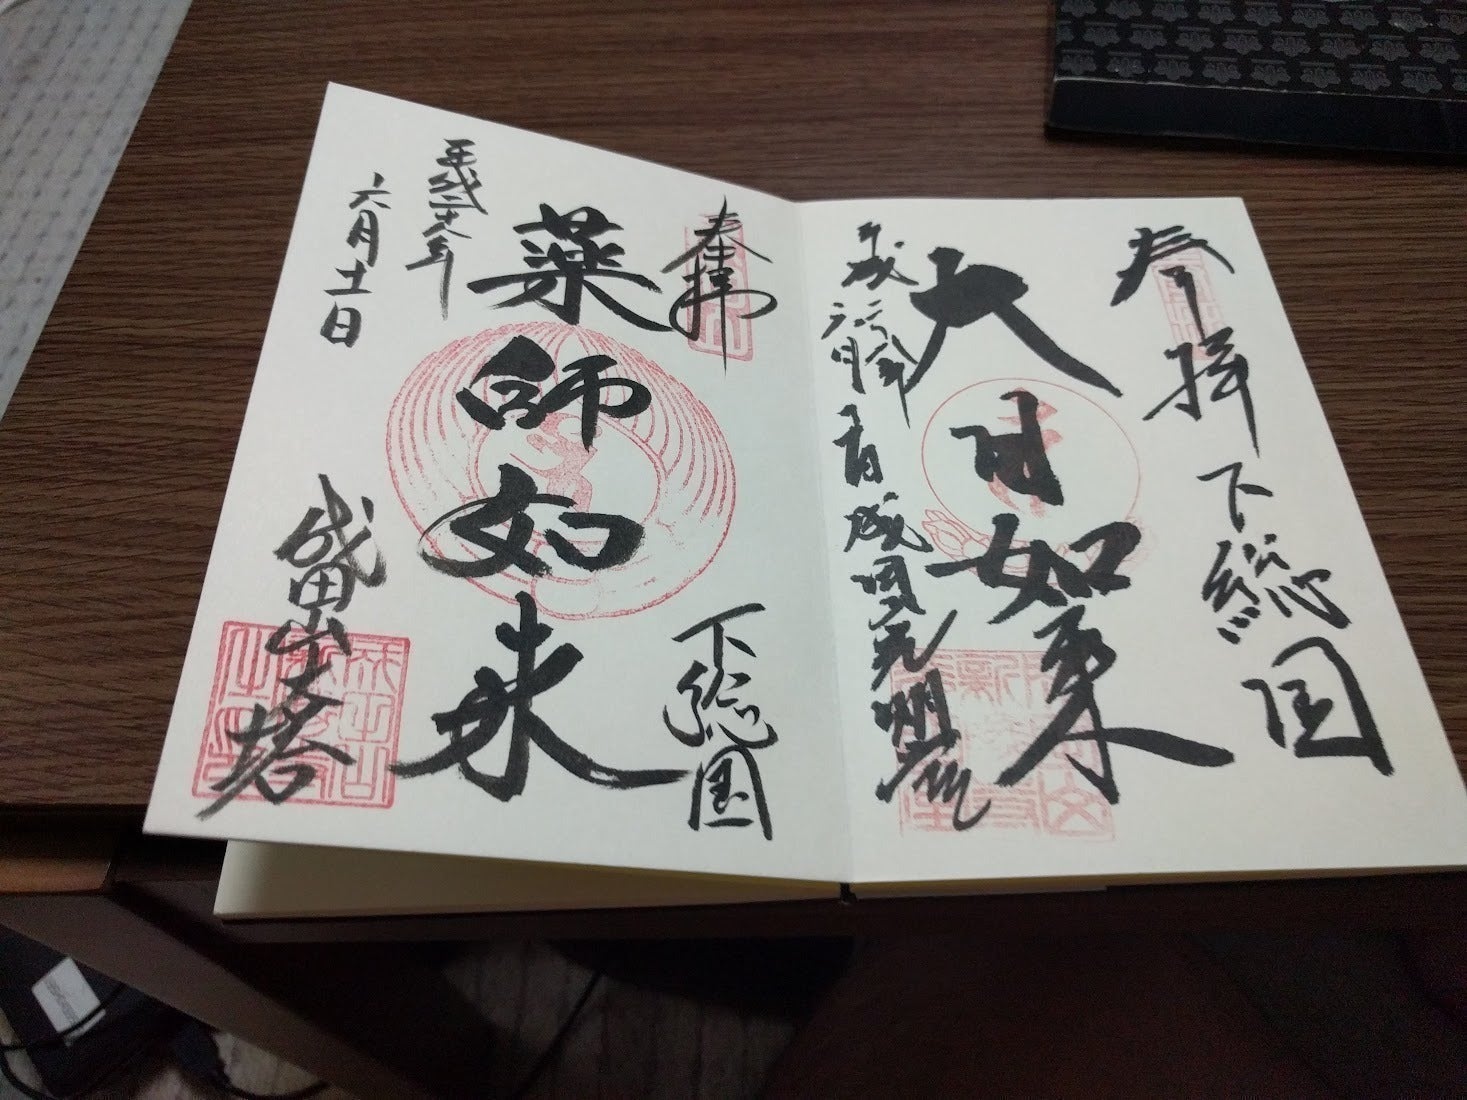 奉拝 下総国
大日如来
平成二十八年
六月十一日 成田山光明堂
奉拝 下総国
薬師如来
平成二十八年
六月十一日
成田山大塔